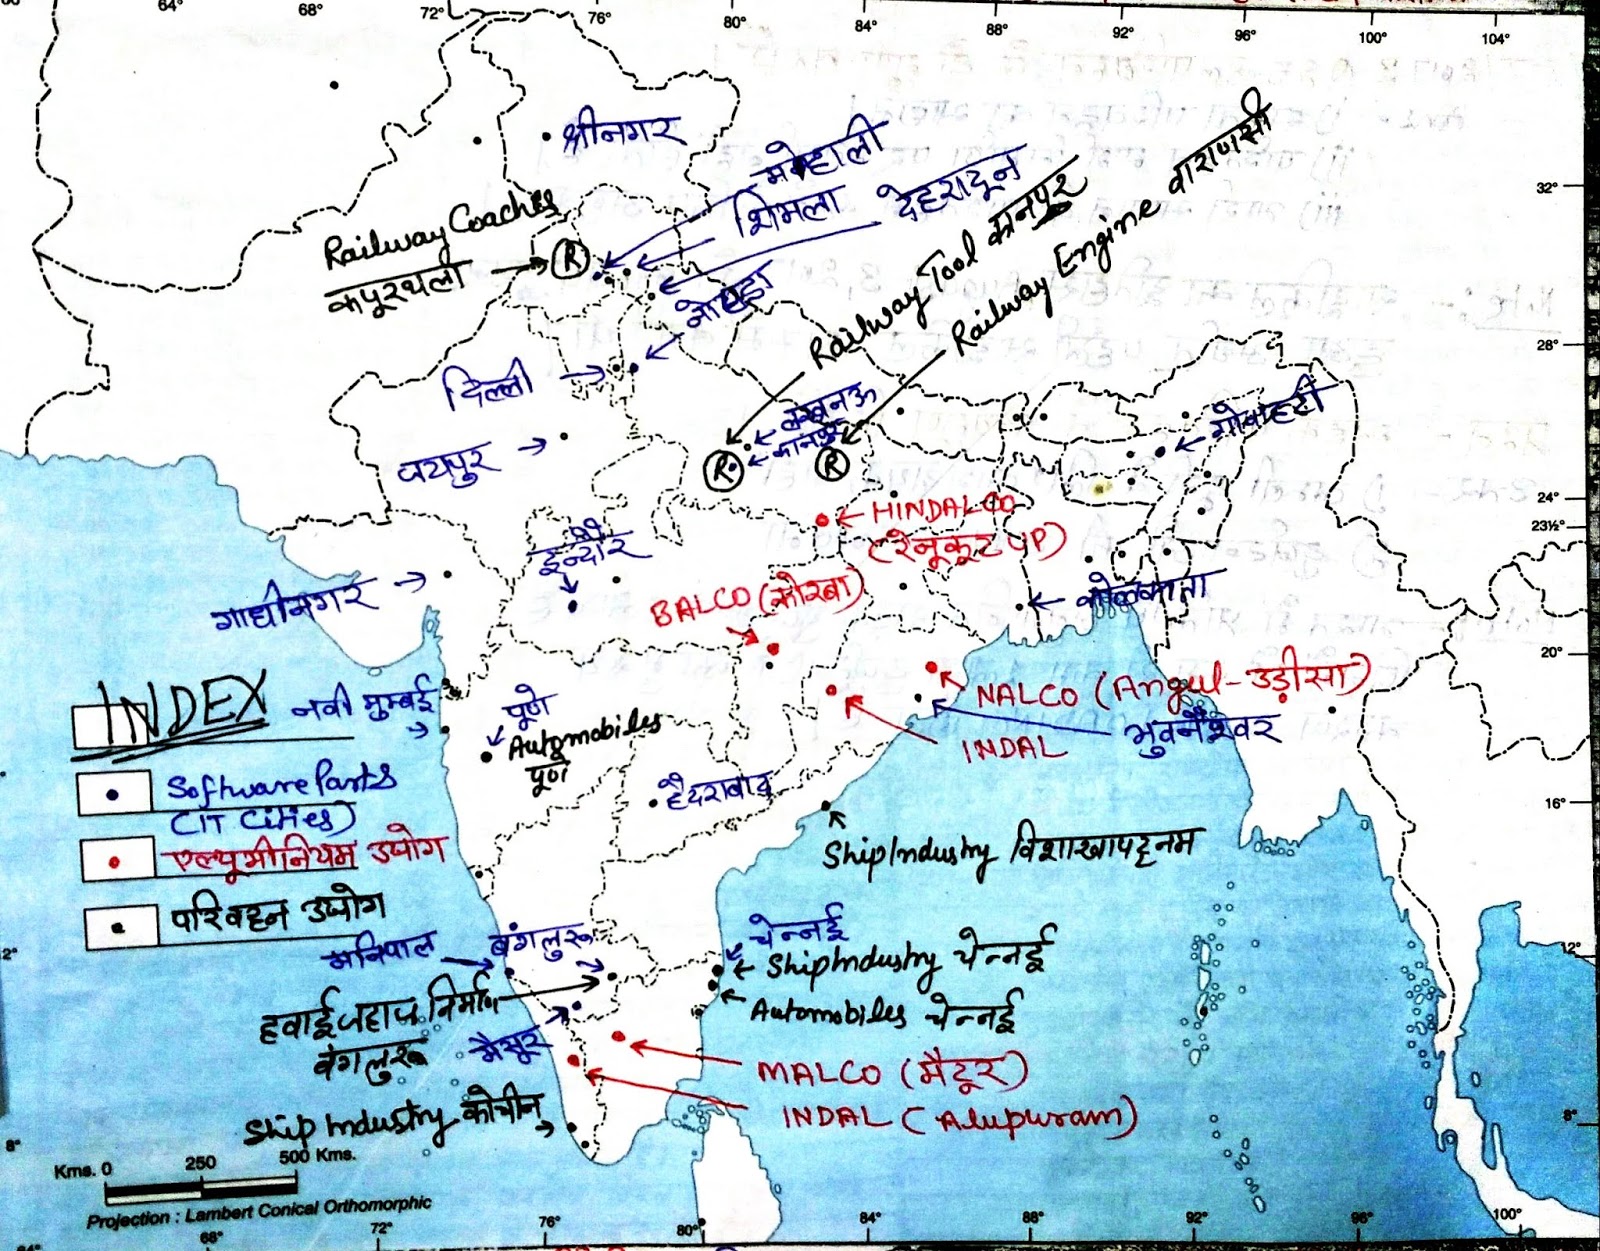 64°
68°
72°
76°
80°
84°
88°
92°
96°
100°
104°
श्रीनगर
मोहाली
शिमला
देहरादून
Railway Tool कानपुर
Railway Engine वाराणसी
Railway Coaches
कपूरथला
R
32°
नोएडा
28°
दिल्ली
लखनऊ
कानपुर
गोवाहटी
जयपुर
R
R
24°
23½°
HINDALCO
(रेनूकूट UP)
इन्दौर
गाधीनगर
BALCO (कोरबा)
कोलकाता
20°
NALCO (Angul-उड़ीसा)
INDAL
भुवनेश्वर
INDEX
नवी मुम्बई
पूणे
Automobiles
पूणे
Software Parks
(IT Cities)
हैदराबाद
16°
एल्यूमीनियम उधोग
Ship Industry विशाखापट्टनम
परिवहन उधोग
मनिपाल
बंगलुरू
चेन्नई
Ship Industry चेन्नई
12°
2°
हवाई जहाज निर्माण
बंगलुरू
मैसूर
Automobiles चेन्नई
MALCO (मैटूर)
INDAL (Alupuram)
Ship Industry कोचीन
8°
8°
Kms. 0 250 500 Kms.
Projection : Lambert Conical Orthomorphic
68°
72°
76°
80°
84°
88°
92°
96°
100°